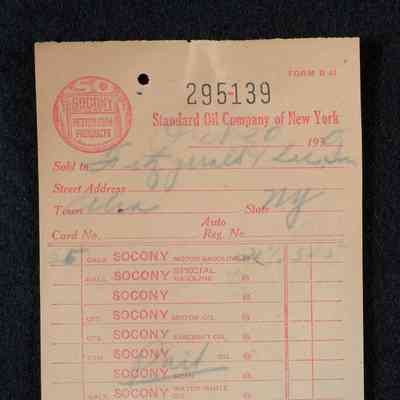 FORM B 41
295139
SOCONY
PETROLEUM
PRODUCTS
Standard Oil Company of New York
20 19
Sold to Fitzgerald
Street Address
Town State NY
Auto
Card No. Reg. No.
GALS. SOCONY MOTOR GASOLINE @
GALS. SOCONY SPECIAL GASOLINE @
SOCONY @
QTS. SOCONY MOTOR OIL @
QTS. SOCONY AIRCRAFT OIL @
SOCONY OIL @
SOCONY @
Paid
GALS. SOCONY WATER WHITE @